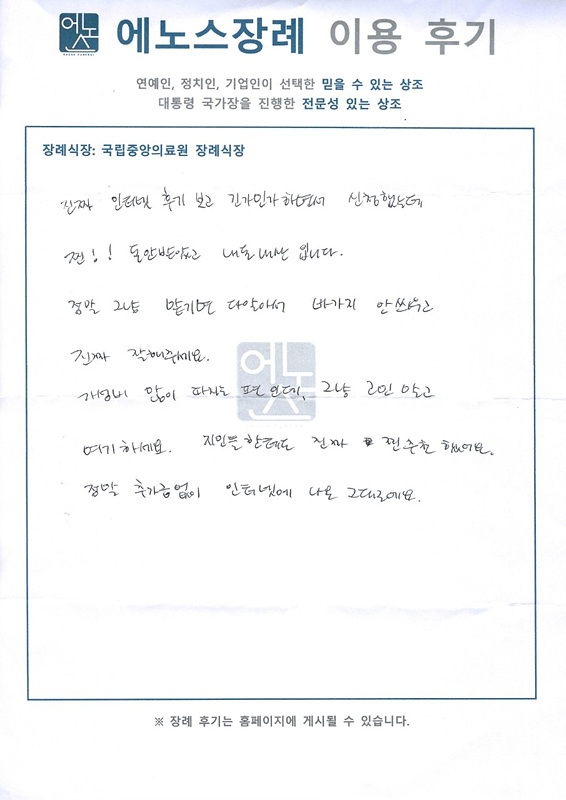 에노스 에노스장례 이용 후기
연예인, 정치인, 기업인이 선택한 믿을 수 있는 상조
대통령 국가장을 진행한 전문성 있는 상조
장례식장: 국립중앙의료원 장례식장
진짜 인터넷 후기 보고 긴가민가하면서 신청했는데
찐!! 돈안받았고 내돈내산 입니다.
정말 그냥 맡기면 다알아서 바가지 안쓰우고
진짜 잘해주세요.
에노스
많이 따지는 편인데, 그냥 고민 마소고
여기하세요. 지인들한테도 진짜 찐추천 했어요.
정말 추가금없이 인터넷에 나온 그대로예요.
※ 장례 후기는 홈페이지에 게시될 수 있습니다.